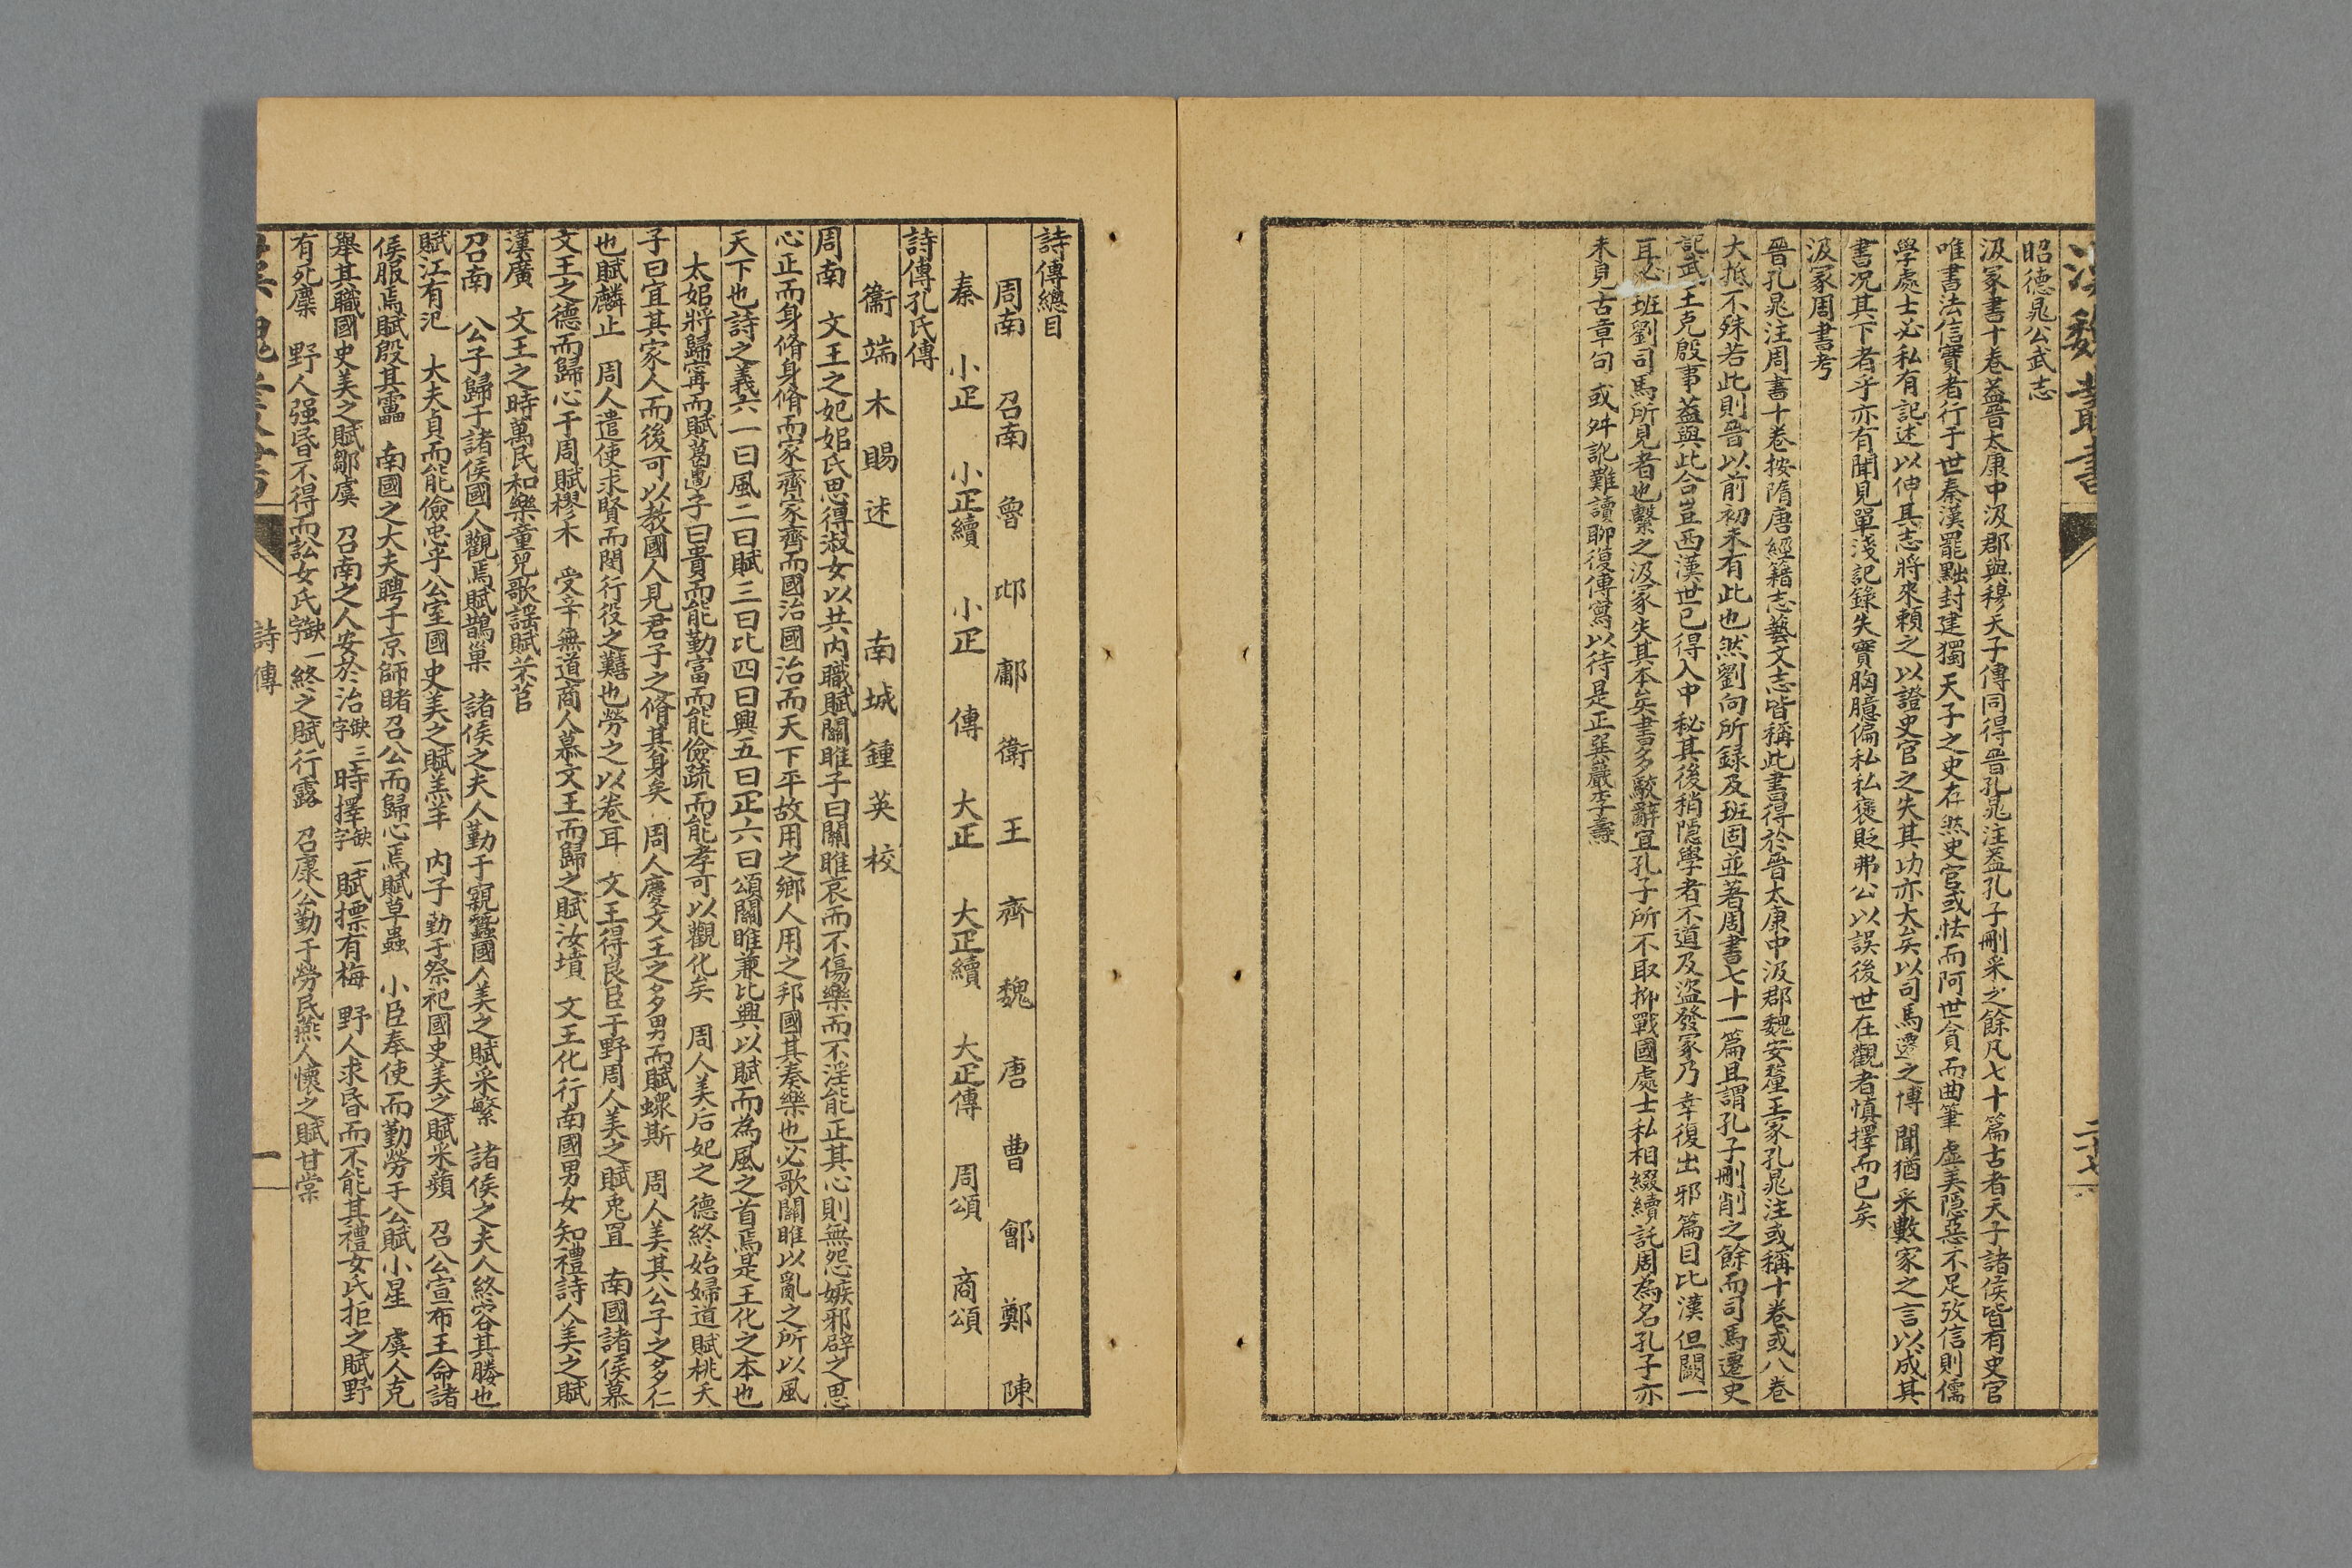 漢魏叢書
二十七
昭德晁公武志
汲冢書十卷葢晉太康中汲郡與穆天子傳同得晉孔晁注葢孔子刪采之餘凡七十篇古者天子諸侯皆有史官
唯書法信實者行于世秦漢罷黜封建獨天子之史存然史官或怯而阿世貪而曲筆虛美隱惡不足攷信則儒
學處士必私有記述以伸其志將來賴之以證史官之失其功亦大矣以司馬遷之博聞猶采數家之言以成其
書况其下者乎亦有聞見單淺記錄失實胸臆偏私私褒貶弗公以誤後世在觀者慎擇而已矣
汲冢周書考
晉孔晁注周書十卷按隋唐經籍志藝文志皆稱此書得於晉太康中汲郡魏安釐王冢孔晁注或稱十卷或八卷
大抵不殊若此則晉以前初未有此也然劉向所錄及班固並著周書七十一篇且謂孔子刪削之餘而司馬遷史
記武王克殷事葢與此合豈西漢世已得入中秘其後稍隱學者不道及盜發冢乃幸復出邪篇目比漢但闕一
耳必班劉司馬所見者也繫之汲冢失其本矣書多駮辭宜孔子所不取抑戰國處士私相綴續託周為名孔子亦
未見古章句或舛訛難讀聊復傳寫以待是正巽巖李燾
詩傳總目
周南　召南　魯　邶　鄘　衛　王　齊　魏　唐　曹　鄶　鄭　陳
秦　小正　小正續　小正　傳　大正　大正續　大正傳　周頌　商頌
詩傳孔氏傳
衞端木賜述　南城鍾英校
周南　文王之妃姬氏思得淑女以共内職賦關雎子曰關雎哀而不傷樂而不淫能正其心則無怨嫉邪辟之思
心正而身脩身脩而家齊家齊而國治國治而天下平故用之鄉人用之邦國其奏樂也必歌關雎以亂之所以風
天下也詩之義六一曰風二曰賦三曰比四曰興五曰正六曰頌關雎兼比興以賦而為風之首焉是王化之本也
太姒將歸寧而賦葛覃子曰貴而能勤富而能儉疏而能孝可以觀化矣　周人美后妃之德終始婦道賦桃夭
子曰宜其家人而後可以教國人見君子之脩其身矣　周人慶文王之多男而賦螽斯　周人美其公子之多仁
也賦麟止　周人遣使求賢而閔行役之囏也勞之以卷耳　文王得良臣于野周人美之賦兎罝　南國諸侯慕
文王之德而歸心于周賦樛木　受辛無道商人慕文王而歸之賦汝墳　文王化行南國男女知禮詩人美之賦
漢廣　文王之時萬民和樂童兒歌謡賦芣苢
召南　公子歸于諸侯國人觀焉賦鵲巢　諸侯之夫人勤于親蠶國人美之賦采蘩　諸侯之夫人終容其媵也
賦江有汜　大夫貞而能儉忠乎公室國史美之賦羔羊　内子勤于祭祀國史美之賦采蘋　召公宣布王命諸
侯服焉賦殷其靁　南國之大夫聘于京師睹召公而歸心焉賦草蟲　小臣奉使而勤勞于公賦小星　虞人克
舉其職國史美之賦騶虞　召南之人安於治缺三字時擇缺一字賦摽有梅　野人求昏而不能具禮女氏拒之賦野
有死麕　野人强昏不得而訟女氏缺一字終之賦行露　召康公勤于勞民燕人懷之賦甘棠
漢魏叢書
詩傳
一